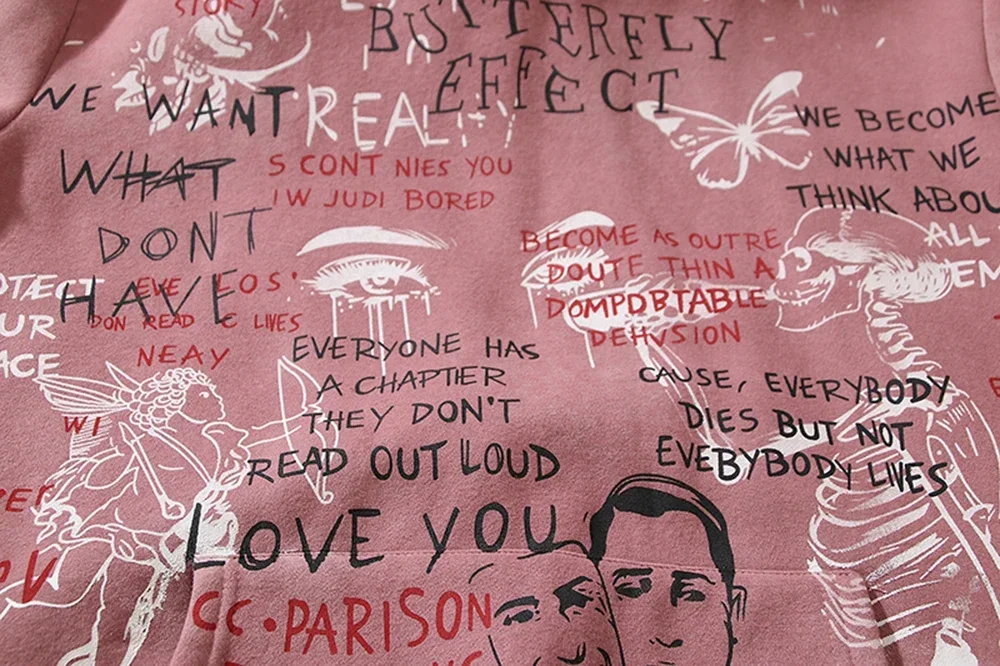 STORY
BUTTERFLY
EFFECT
WE WANT REALITY
WHAT
DON'T
HAVE
S CONT NIES YOU
IW JUDI BORED
WE BECOME
WHAT WE
THINK ABOU
BECOME AS OUTRE
DOUTE THIN A
DOMPDBTABLE
DEHVSION
ALL
EM
OTÆCT
UR
ACE
EVE EOS'
DON READ C LIVES
NEAY
WI
EVERYONE HAS
A CHAPTIER
THEY DON'T
READ OUT LOUD
CAUSE, EVERYBODY
DIES BUT NOT
EVEBYBODY LIVES
LOVE YOU
CC•PARISON